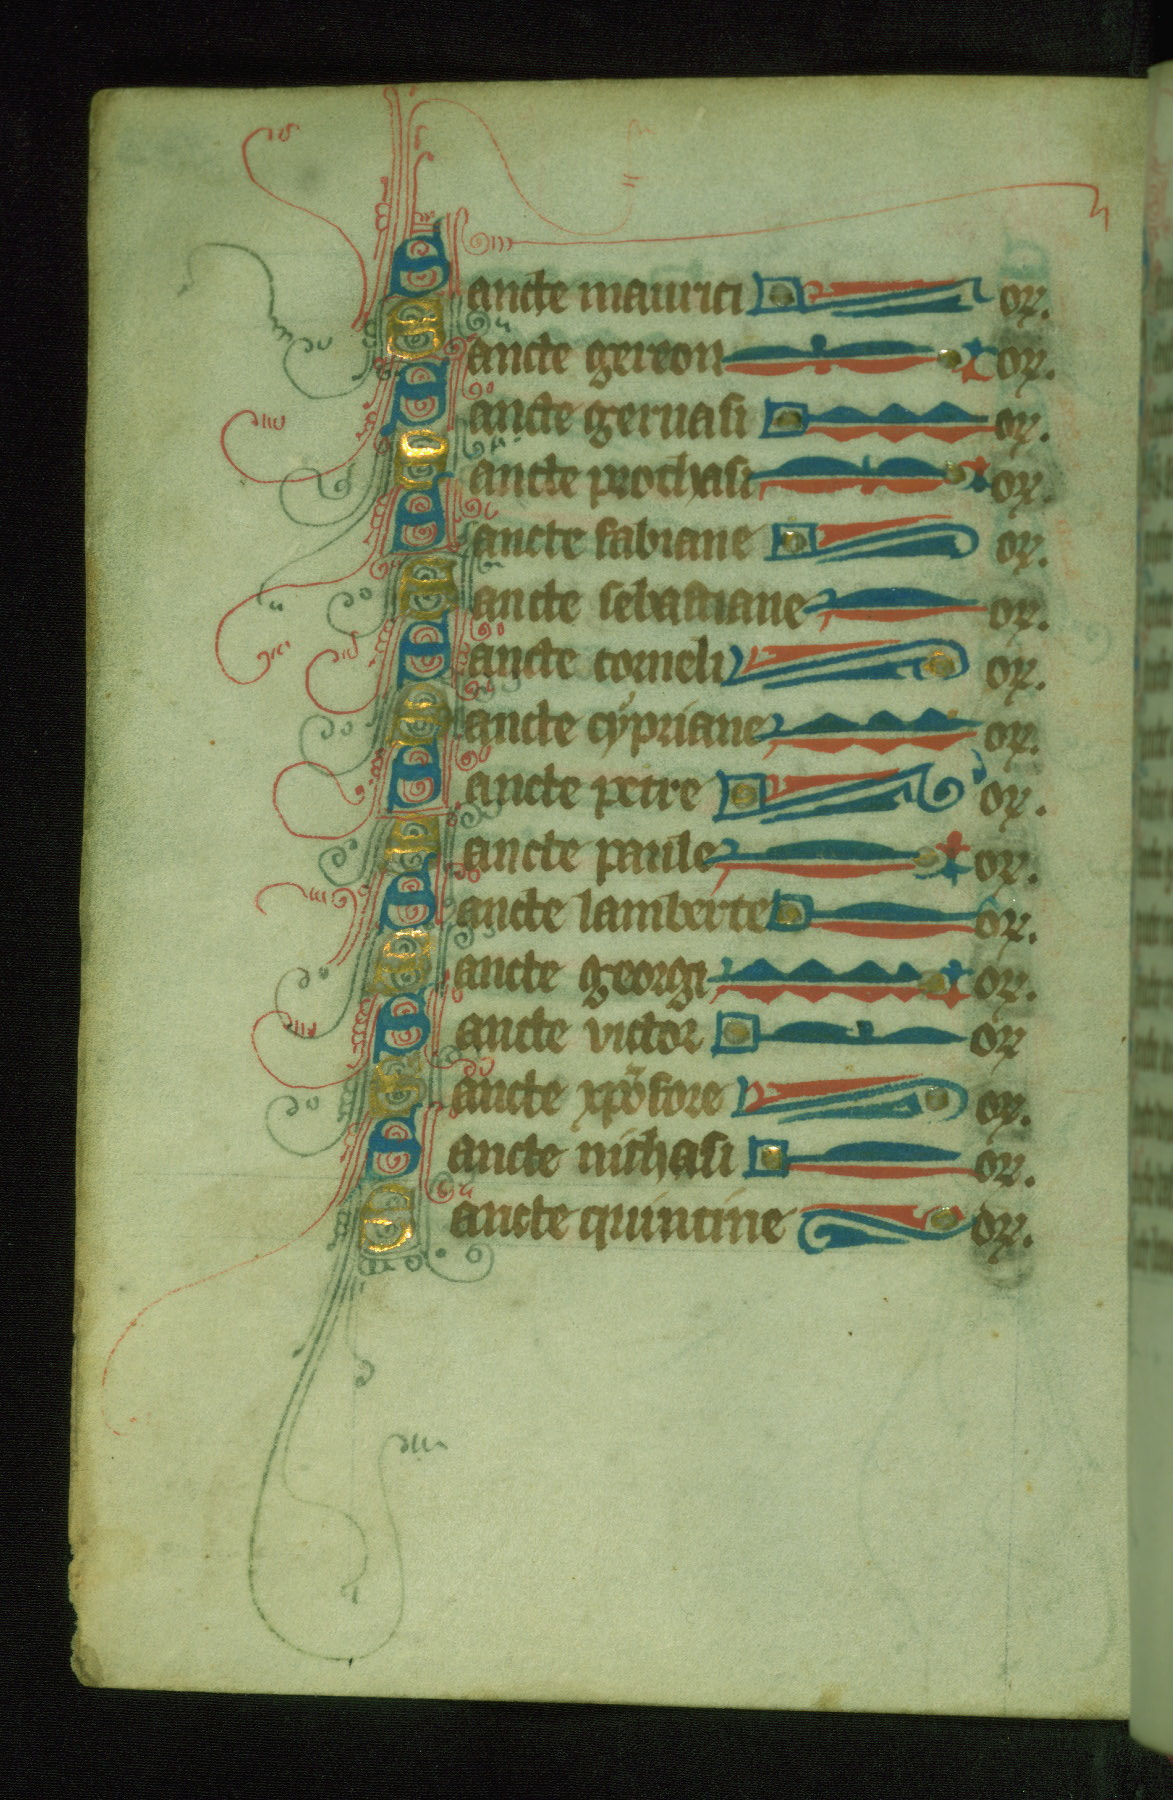 Sancte maurici or.
Sancte gereon or.
Sancte geruasi or.
Sancte prothasi or.
Sancte fabiane or.
Sancte sebastiane or.
Sancte corneli or.
Sancte cypriane or.
Sancte petre or.
Sancte paule or.
Sancte lamberte or.
Sancte georgi or.
Sancte victor or
Sancte xpofore or.
Sancte nichasi or.
Sancte quintine or.